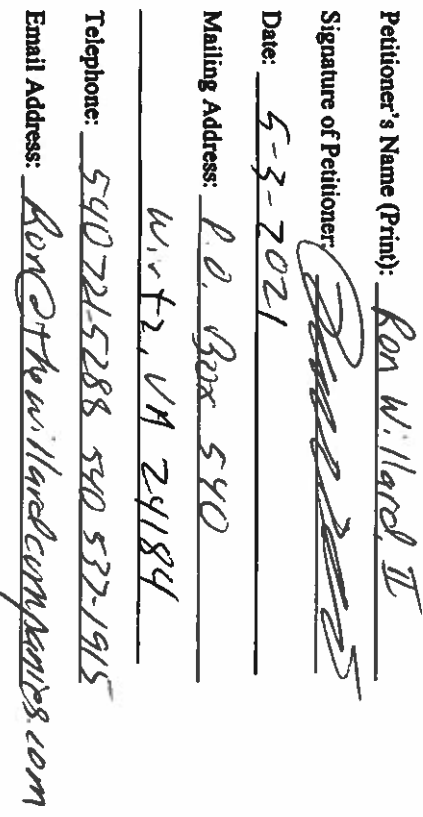 Petitioner's Name (Print): Ron Willard, II
Signature of Petitioner:
Date: 5-3-2021
Mailing Address: P.O. Box 540
Wirtz, VA 24184
Telephone: 540 721-5288 540 537-1915
Email Address: Ron@thewillardcompanies.com